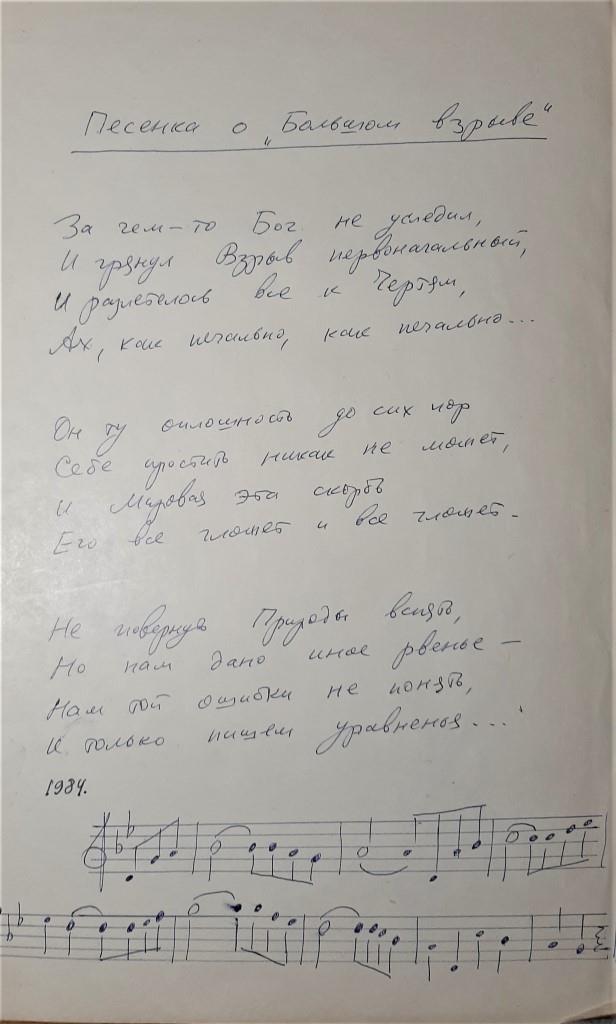 Песенка о „Большом взрыве“
За чем-то Бог не уследил,
И грянул Взрыв первоначальный,
И разлетелось все к Чертям,
Ах, как печально, как печально...
Он ту оплошность до сих пор
Себе простить никак не может,
И Мировая эта скорбь
Его все гложет и все гложет.
Не повернуть Природы вспять,
Но нам дано иное рвенье —
Нам той ошибки не понять,
И только пишем уравненья....
1984.